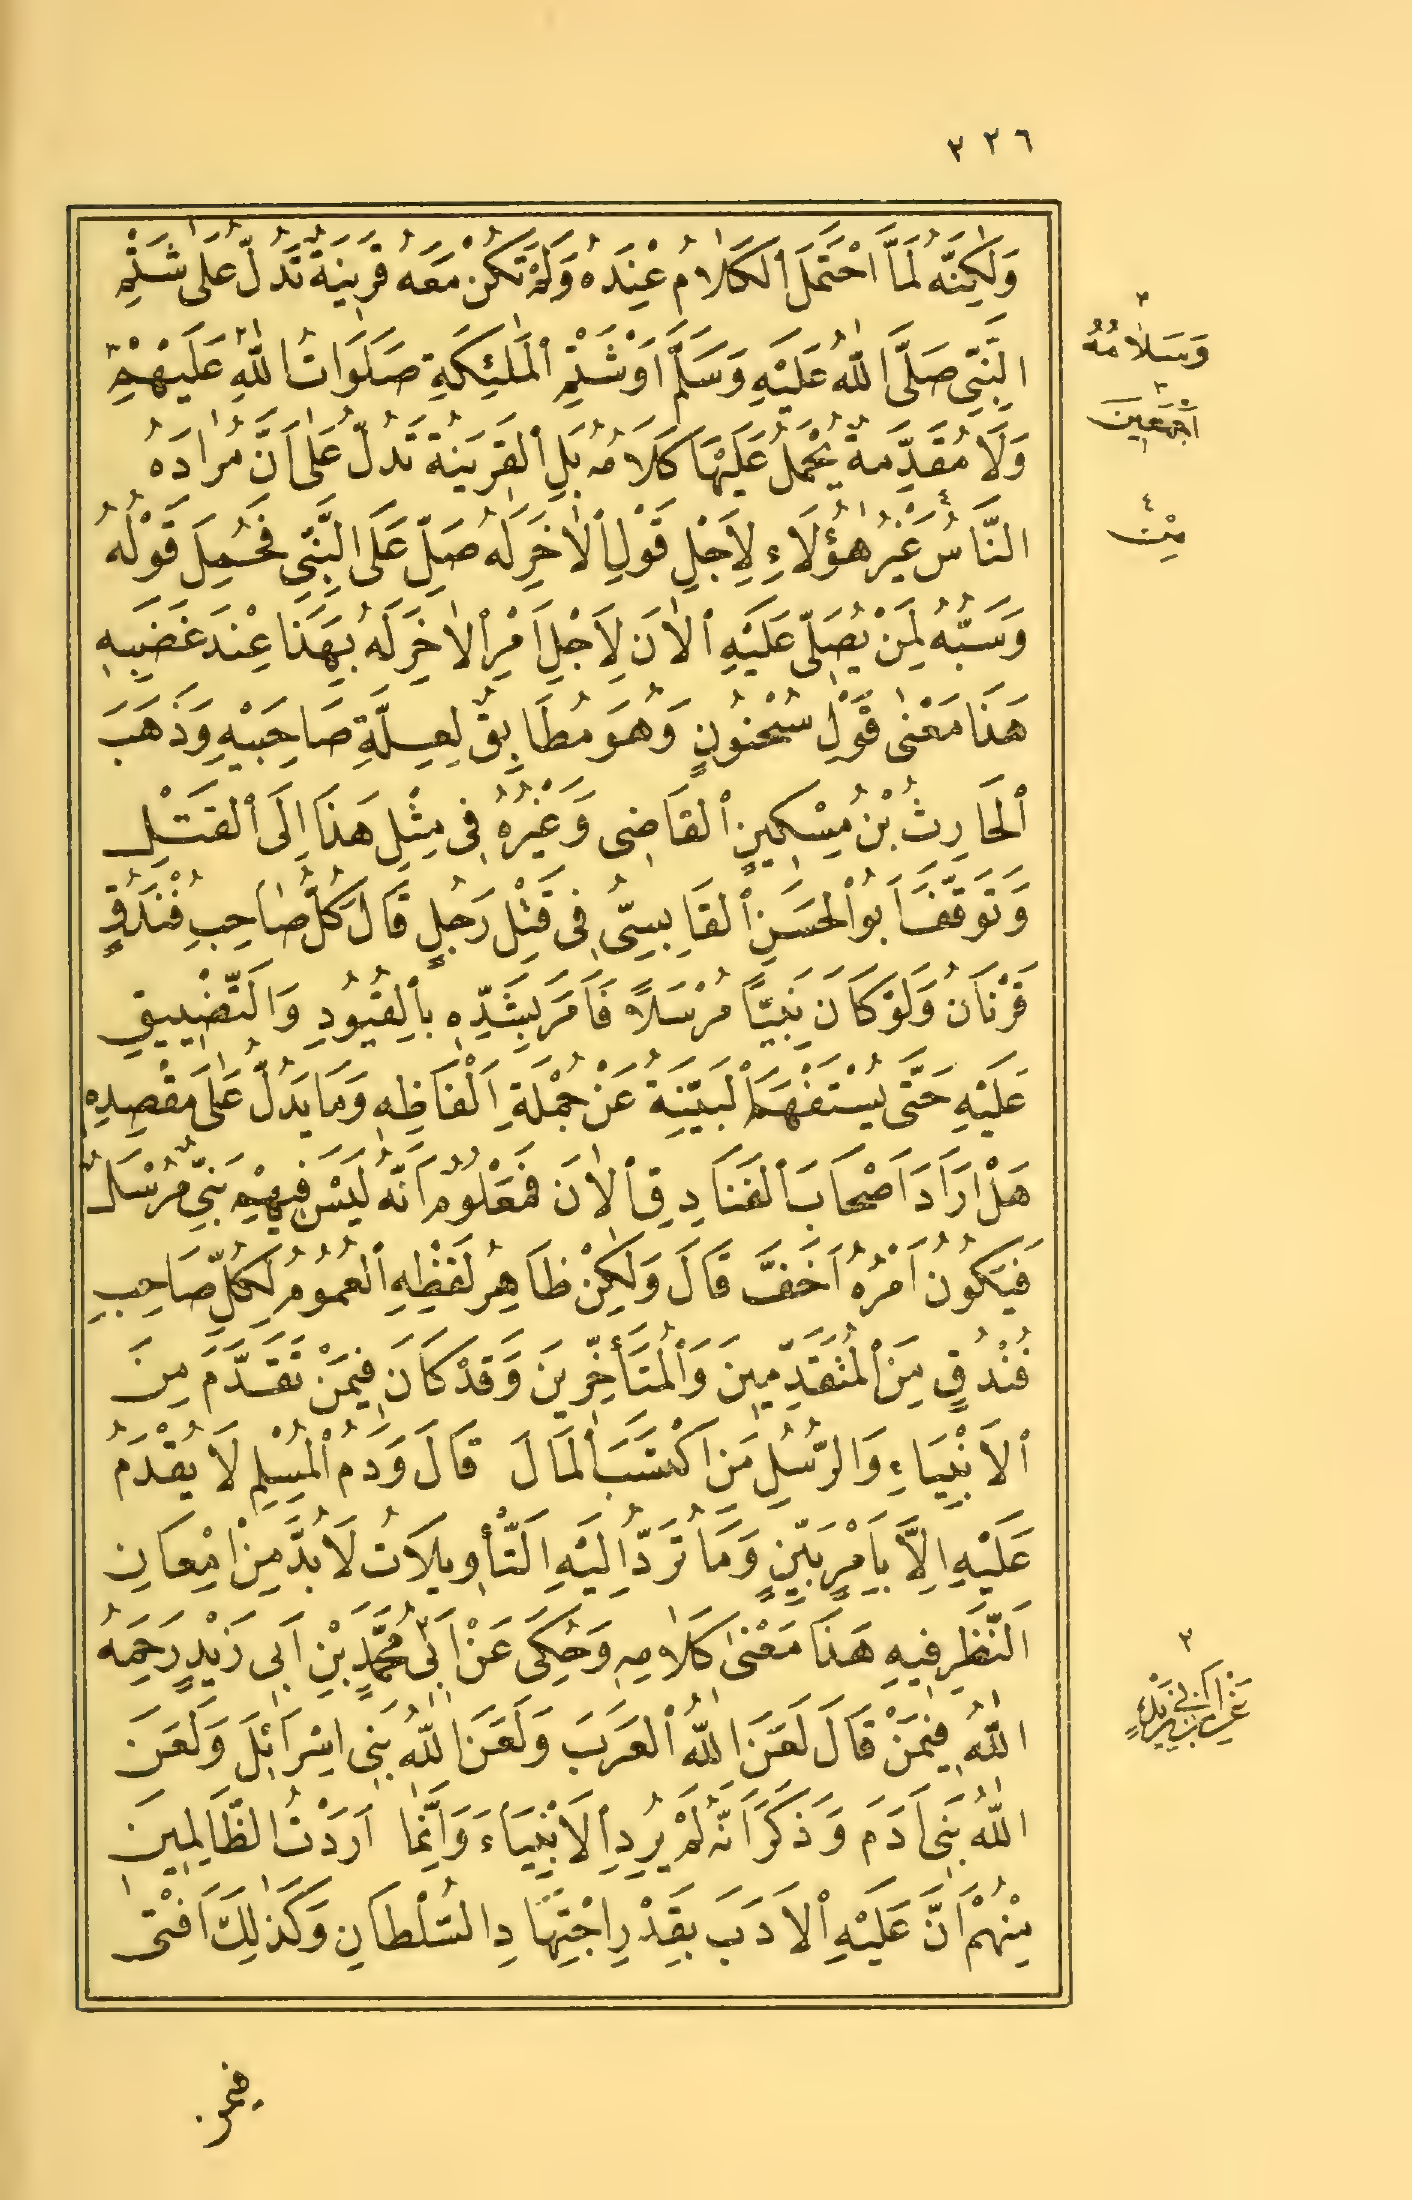 ٣٢٦
وَلَكِنَّهُ لَمَّا احْتَمَلَ الْكَلَامُ عِنْدَهُ وَلَمْ تَكُنْ مَعَهُ قَرِينَةٌ تَدُلُّ عَلَى شَتْمِ
النَّبِيِّ صَلَّى اللهُ عَلَيْهِ وَسَلَّمَ اَوْ شَتْمِ الْمَلَئِكَةِ صَلَوَاتُ اللهِ عَلَيْهِمْ ٣
وَلَا مُقَدِّمَةٌ يُحْمَلُ عَلَيْهَا كَلَامُهُ بَلِ الْقَرِينَةُ تَدُلُّ عَلَى اَنَّ مُرَادَهُ
النَّاسُ ٤ غَيْرُ هٰؤُلَاءِ لِاَجْلِ قَوْلِ الْاٰخَرِ لَهُ صَلِّ عَلَى النَّبِيِّ فَحُمِلَ قَوْلُهُ
وَسَبُّهُ لِمَنْ يُصَلِّي عَلَيْهِ الْاٰنَ لِاَجْلِ اَمْرِ الْاٰخَرِ لَهُ بِهَذَا عِنْدَ غَضَبِهِ
هَذَا مَعْنٰى قَوْلِ سُحْنُونٍ وَهُوَ مُطَابِقٌ لِعِلَّةِ صَاحِبَيْهِ وَذَهَبَ
الْحَارِثُ بْنُ مِسْكِينٍ الْقَاضِى وَغَيْرُهُ فِى مِثْلِ هَذَا اِلَى الْقَتْلِ
وَتَوَقَّفَ اَبُو الْحَسَنِ الْقَابِسِيُّ فِى قَتْلِ رَجُلٍ قَالَ كُلُّ صَاحِبِ فُنْدُقٍ
قَرْنَانُ وَلَوْ كَانَ نَبِيًّا مُرْسَلًا فَاَمَرَ بِشَدِّهِ بِالْقُيُودِ وَالتَّضْيِيقِ
عَلَيْهِ حَتَّى يُسْتَفْهَمَ الْبَيِّنَةُ عَنْ جُمْلَةِ اَلْفَاظِهِ وَمَا يَدُلُّ عَلَى مَقْصِدِهِ
هَلْ اَرَادَ اَصْحَابَ الْفَنَادِقِ الْاٰنَ فَمَعْلُومٌ اَنَّهُ لَيْسَ فِيهِمْ نَبِيٌّ مُرْسَلٌ
فَيَكُونُ اَمْرُهُ اَخَفَّ قَالَ وَلَكِنْ ظَاهِرُ لَفْظِهِ الْعُمُومُ لِكُلِّ صَاحِبِ
فُنْدُقٍ مِنَ الْمُتَقَدِّمِينَ وَالْمُتَأَخِّرِينَ وَقَدْ كَانَ فِيمَنْ تَقَدَّمَ مِنَ
الْاَنْبِيَاءِ وَالرُّسُلِ مَنِ اكْتَسَبَ الْمَالَ قَالَ وَدَمُ الْمُسْلِمِ لَا يُقْدَمُ
عَلَيْهِ اِلَّا بِاَمْرٍ بَيِّنٍ وَمَا تُرَدُّ اِلَيْهِ التَّأْوِيلَاتُ لَا بُدَّ مِنْ اِمْعَانِ
النَّظَرِ فِيهِ هَذَا مَعْنٰى كَلَامِهِ وَحُكِىَ عَنْ اَبِى ٣ مُحَمَّدِ بْنِ اَبِى زَيْدٍ رَحِمَهُ
اللهُ فِيمَنْ قَالَ لَعَنَ اللهُ الْعَرَبَ وَلَعَنَ اللهُ بَنِى اِسْرَائِلَ وَلَعَنَ
اللهُ بَنِى اٰدَمَ وَذَكَرَ اَنَّهُ لَمْ يُرِدِ الْاَنْبِيَاءَ وَاَنَّمَا اَرَدْتُ الظَّالِمِينَ
مِنْهُمْ اَنَّ عَلَيْهِ الْاَدَبَ بِقَدْرِ اجْتِهَادِ السُّلْطَانِ وَكَذٰلِكَ اَفْتٰى
٣
وَسَلَامُهُ
٣
اَجْمَعِينَ
٤
مِنْ
٣
عَنِ ابْنِ اَبِى زَيْدٍ
فيمن